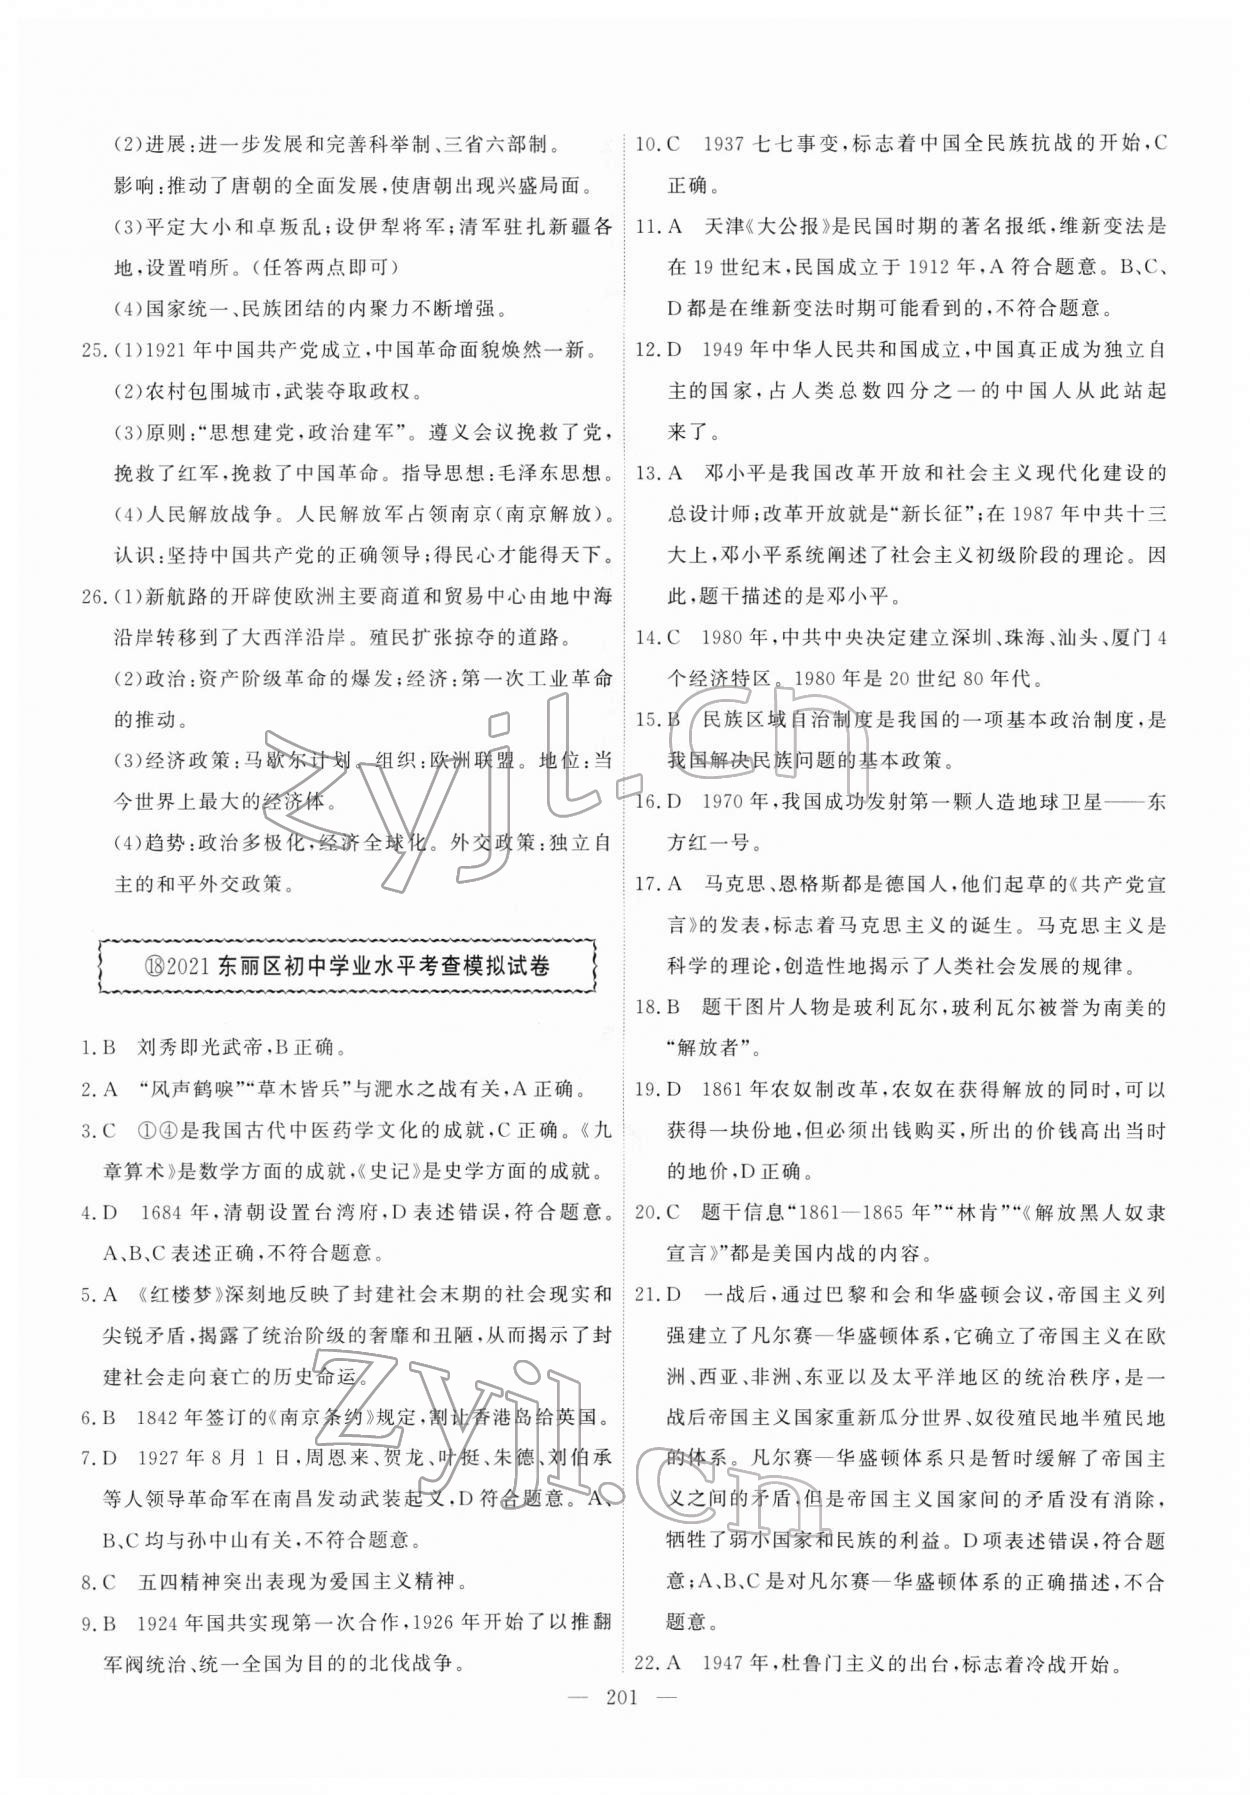 (2)进展:进一步发展和完善科举制、三省六部制。
影响:推动了唐朝的全面发展,使唐朝出现兴盛局面。
(3)平定大小和卓叛乱;设伊犁将军;清军驻扎新疆各
地,设置哨所。(任答两点即可)
(4)国家统一、民族团结的内聚力不断增强。
25.(1)1921年中国共产党成立,中国革命面貌焕然一新。
(2)农村包围城市,武装夺取政权。
(3)原则:“思想建党,政治建军”。遵义会议挽救了党,
挽救了红军,挽救了中国革命。指导思想:毛泽东思想。
(4)人民解放战争。人民解放军占领南京(南京解放)。
认识:坚持中国共产党的正确领导;得民心才能得天下。
26.(1)新航路的开辟使欧洲主要商道和贸易中心由地中海
沿岸转移到了大西洋沿岸。殖民扩张掠夺的道路。
(2)政治:资产阶级革命的爆发;经济:第一次工业革命
的推动。
(3)经济政策:马歇尔计划。组织:欧洲联盟。地位:当
今世界上最大的经济体。
(4)趋势:政治多极化,经济全球化。外交政策:独立自
主的和平外交政策。
⑱2021东丽区初中学业水平考查模拟试卷
1. B 刘秀即光武帝,B正确。
2. A “风声鹤唳”“草木皆兵”与淝水之战有关,A正确。
3. C ①④是我国古代中医药学文化的成就,C正确。《九
章算术》是数学方面的成就,《史记》是史学方面的成就。
4. D 1684年,清朝设置台湾府,D表述错误,符合题意。
A、B、C表述正确,不符合题意。
5. A 《红楼梦》深刻地反映了封建社会末期的社会现实和
尖锐矛盾,揭露了统治阶级的奢靡和丑陋,从而揭示了封
建社会走向衰亡的历史命运。
6. B 1842年签订的《南京条约》规定,割让香港岛给英国。
7. D 1927年8月1日,周恩来、贺龙、叶挺、朱德、刘伯承
等人领导革命军在南昌发动武装起义,D符合题意。A、
B、C均与孙中山有关,不符合题意。
8. C 五四精神突出表现为爱国主义精神。
9. B 1924年国共实现第一次合作,1926年开始了以推翻
军阀统治、统一全国为目的的北伐战争。
10. C 1937七七事变,标志着中国全民族抗战的开始,C
正确。
11. A 天津《大公报》是民国时期的著名报纸,维新变法是
在19世纪末,民国成立于1912年,A符合题意。B、C、
D都是在维新变法时期可能看到的,不符合题意。
12. D 1949年中华人民共和国成立,中国真正成为独立自
主的国家,占人类总数四分之一的中国人从此站起
来了。
13. A 邓小平是我国改革开放和社会主义现代化建设的
总设计师;改革开放就是“新长征”;在1987年中共十三
大上,邓小平系统阐述了社会主义初级阶段的理论。因
此,题干描述的是邓小平。
14. C 1980年,中共中央决定建立深圳、珠海、汕头、厦门4
个经济特区。1980年是20世纪80年代。
15. B 民族区域自治制度是我国的一项基本政治制度,是
我国解决民族问题的基本政策。
16. D 1970年,我国成功发射第一颗人造地球卫星——东
方红一号。
17. A 马克思、恩格斯都是德国人,他们起草的《共产党宣
言》的发表,标志着马克思主义的诞生。马克思主义是
科学的理论,创造性地揭示了人类社会发展的规律。
18. B 题干图片人物是玻利瓦尔,玻利瓦尔被誉为南美的
“解放者”。
19. D 1861年农奴制改革,农奴在获得解放的同时,可以
获得一块份地,但必须出钱购买,所出的价钱高出当时
的地价,D正确。
20. C 题干信息“1861—1865年”“林肯”“《解放黑人奴隶
宣言》”都是美国内战的内容。
21. D 一战后,通过巴黎和会和华盛顿会议,帝国主义列
强建立了凡尔赛—华盛顿体系,它确立了帝国主义在欧
洲、西亚、非洲、东亚以及太平洋地区的统治秩序,是一
战后帝国主义国家重新瓜分世界、奴役殖民地半殖民地
的体系。凡尔赛—华盛顿体系只是暂时缓解了帝国主
义之间的矛盾,但是帝国主义国家间的矛盾没有消除,
牺牲了弱小国家和民族的利益。D项表述错误,符合题
意;A、B、C是对凡尔赛—华盛顿体系的正确描述,不合
题意。
22. A 1947年,杜鲁门主义的出台,标志着冷战开始。
— 201 —
zyjl.cn
zyjl.cn